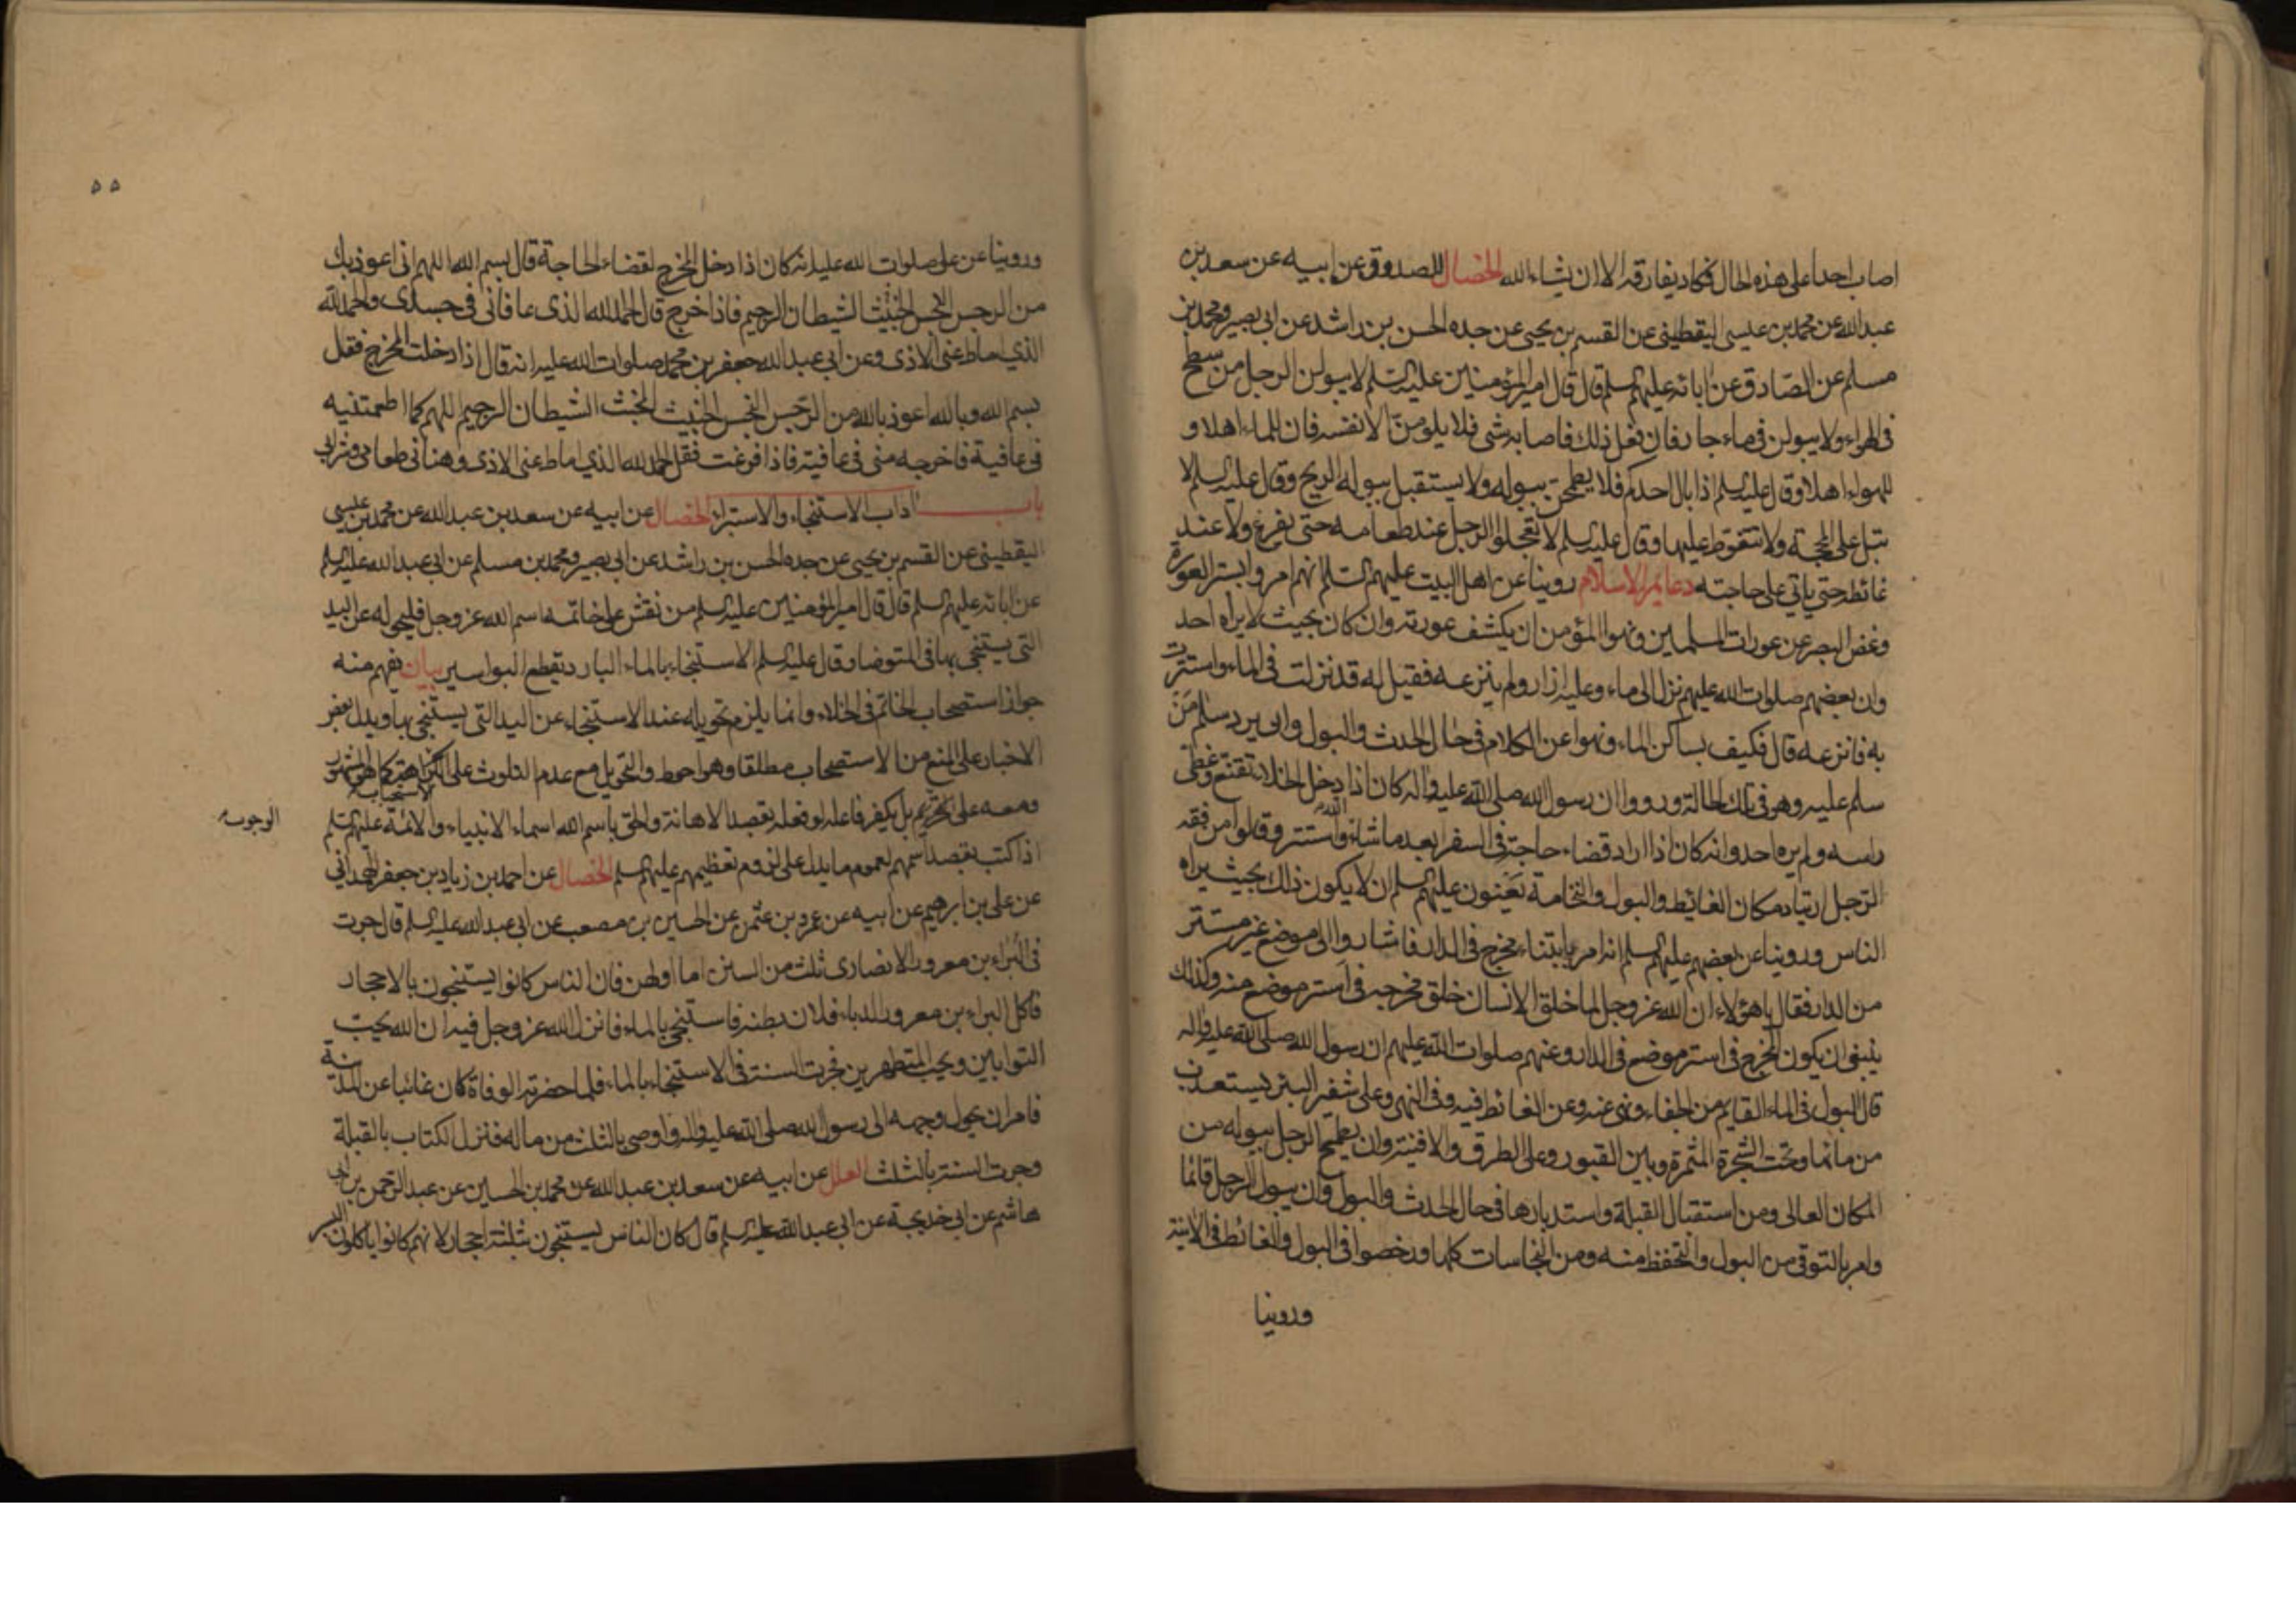 اصاب احدا على هذه الحال فكاد يفارقه الا ان يشاء الله الخصال للصدوق عن ابيه عن سعد بن
عبد الله عن محمد بن عيسى اليقطيني عن القسم بن يحيى عن جده الحسن بن راشد عن ابي بصير ومحمد بن
مسلم عن الصادق عن ابائه عليهم السلم قال قال امير المؤمنين عليه السلم لا يبولن الرجل من سطح
في الهواء ولا يبولن في ماء جار فان فعل ذلك فاصابه شي فلا يلومن الا نفسه فان للماء اهلا و
للهواء اهلا وقال عليه السلم اذا بال احدكم فلا يطمحن ببوله ولا يستقبل ببوله الريح وقال عليه السلم لا
تبل على المحجة ولا تتغوط عليها وقال عليه السلم لا تعجلوا الرجل عند طعامه حتى يفرغ ولا عند
غائطه حتى ياتي على حاجته دعايم الاسلام روينا عن اهل البيت عليهم السلم انهم امروا بستر العورة
وغض البصر عن عورات المسلمين ونهوا المؤمن ان يكشف عورته وان كان بحيث لا يراه احد
وان بعضهم صلوات الله عليهم نزل الى ماء وعليه ازار ولم ينزعه فقيل له قد نزلت في الماء واستترت
به فانزعه قال فكيف بساكن الماء ونهوا عن الكلام في حال الحدث والبول وان يرد سلام من
سلم عليه وهو في تلك الحالة ورووا ان رسول الله صلى الله عليه واله كان اذا دخل الخلاء تقنع وغطى
راسه ولم يره احد وانه كان اذا اراد قضاء حاجته في السفر بعد ما شاء الله واستتر وقالوا من فقه
الرجل ارتياد مكان الغائط والبول والنخامة يعنون عليهم السلم ان لا يكون ذلك بحيث يراه
الناس وروينا عن بعضهم عليهم السلم انه امر بابتناء مخرج في الدار فاشاروا الى موضع غير مستتر
من الدار فقال ياهؤلاء ان الله عز وجل لما خلق الانسان خلق مخرجه في استر موضع منه وكذلك
ينبغي ان يكون المخرج في استر موضع في الدار وعنهم صلوات الله عليهم ان رسول الله صلى الله عليه واله
قال البول في الماء القايم من الجفاء ونهى عنه وعن الغائط فيه وفي النهر وعلى شفير البئر يستعذب
من مائها وتحت الشجرة المثمرة وبين القبور وعلى الطرق والافنية وان يطمح الرجل ببوله من
المكان العالى ومن استقبال القبلة واستدبارها في حال الحدث والبول وان يبول الرجل قائما
وامر بالتوقي من البول والتحفظ منه ومن النجاسات كلها ورخصوا في البول والغائط في الانية
وروينا
٥٥
وروينا عن على صلوات الله عليه انه كان اذا دخل المخرج لقضاء الحاجة قال بسم الله اللهم اني اعوذ بك
من الرجس النجس الخبيث الشيطان الرجيم فاذا خرج قال الحمد لله الذى عافانى في جسدى والحمد لله
الذي اماط عنى الاذى وعن ابي عبد الله جعفر بن محمد صلوات الله عليه انه قال اذا دخلت المخرج فقل
بسم الله وبالله اعوذ بالله من الرجس النجس الخبيث المخبث الشيطان الرجيم اللهم كما اطعمتنيه
في عافية فاخرجه منى في عافية فاذا فرغت فقل الحمد لله الذي اماط عنى الاذى وهنانى طعامى وشرابى
باب اداب الاستنجاء والاستبراء الخصال عن ابيه عن سعد بن عبد الله عن محمد بن عيسى
اليقطيني عن القسم بن يحيى عن جده الحسن بن راشد عن ابي بصير ومحمد بن مسلم عن ابي عبد الله عليه السلم
عن ابائه عليهم السلم قال قال امير المؤمنين عليه السلم من نقش على خاتمه اسم الله عز وجل فليحوله عن اليد
التى يستنجي بها في المتوضا وقال عليه السلم الاستنجاء بالماء البارد يقطع البواسير بيان يفهم منه
جواز استصحاب الخاتم في الخلاء وانما يلزم تحويله عند الاستنجاء عن اليد التى يستنجي بها ويدل بعض
الاخبار على المنع من الاستصحاب مطلقا وهو احوط والتحويل مع عدم التلوث على الاستحباب كما هو المشهور
ومعه على التحريم بل يكفر فاعله لو فعله بقصد الاهانة والحق باسم الله اسماء الانبياء والائمة عليهم السلم
الوجوب
اذا كتب بقصد اسمهم لعموم ما يدل على لزوم تعظيمهم عليهم السلم الخصال عن احمد بن زياد بن جعفر الهمداني
عن على بن ابرهيم عن ابيه عن عمرو بن عثمن عن الحسين بن مصعب عن ابي عبد الله عليه السلم قال جرت
في البراء بن معرور الانصارى ثلث من السنن اما اولهن فان الناس كانوا يستنجون بالاحجار
فاكل البراء بن معرور الدباء فلان بطنه فاستنجى بالماء فانزل الله عز وجل فيه ان الله يحب
التوابين ويحب المتطهرين فجرت السنة في الاستنجاء بالماء فلما حضرته الوفاة كان غائبا عن المدينة
فامر ان يحول وجهه الى رسول الله صلى الله عليه واله واوصى بالثلث من ماله فنزل الكتاب بالقبلة
وجرت السنة بالثلث العلل عن ابيه عن سعد بن عبد الله عن محمد بن الحسين عن عبد الرحمن بن ابي
هاشم عن ابي خديجة عن ابي عبد الله عليه السلم قال كان الناس يستنجون بثلثة احجار لانهم كانوا ياكلون البسر